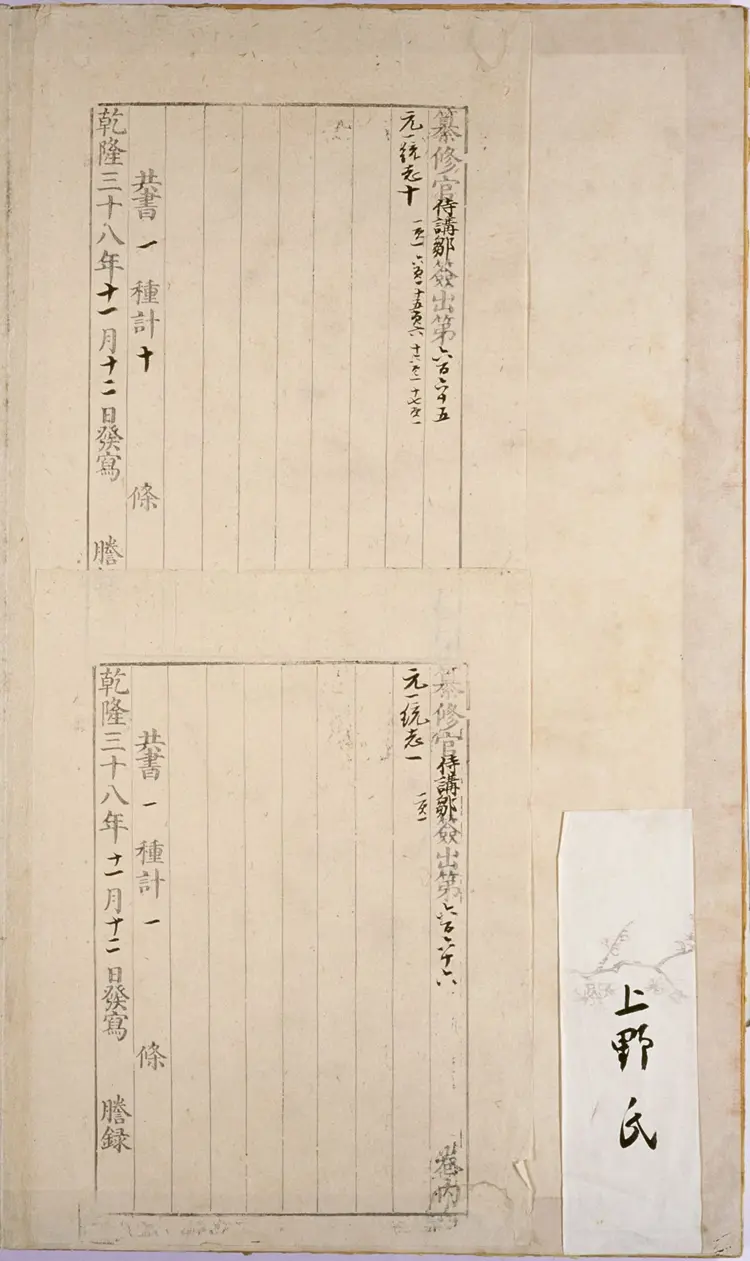 纂修官侍講鄒簽出第六百六十五
元一統志十
一頁一 六頁一 十五頁六 十六頁一 十七頁一
共書一種計十條
乾隆三十八年十一月十二日發寫 謄
纂修官侍講鄒簽出第六百六十六
卷內
元一統志一
一頁一
共書一種計一條
乾隆三十八年十一月十二日發寫 謄録
上野氏